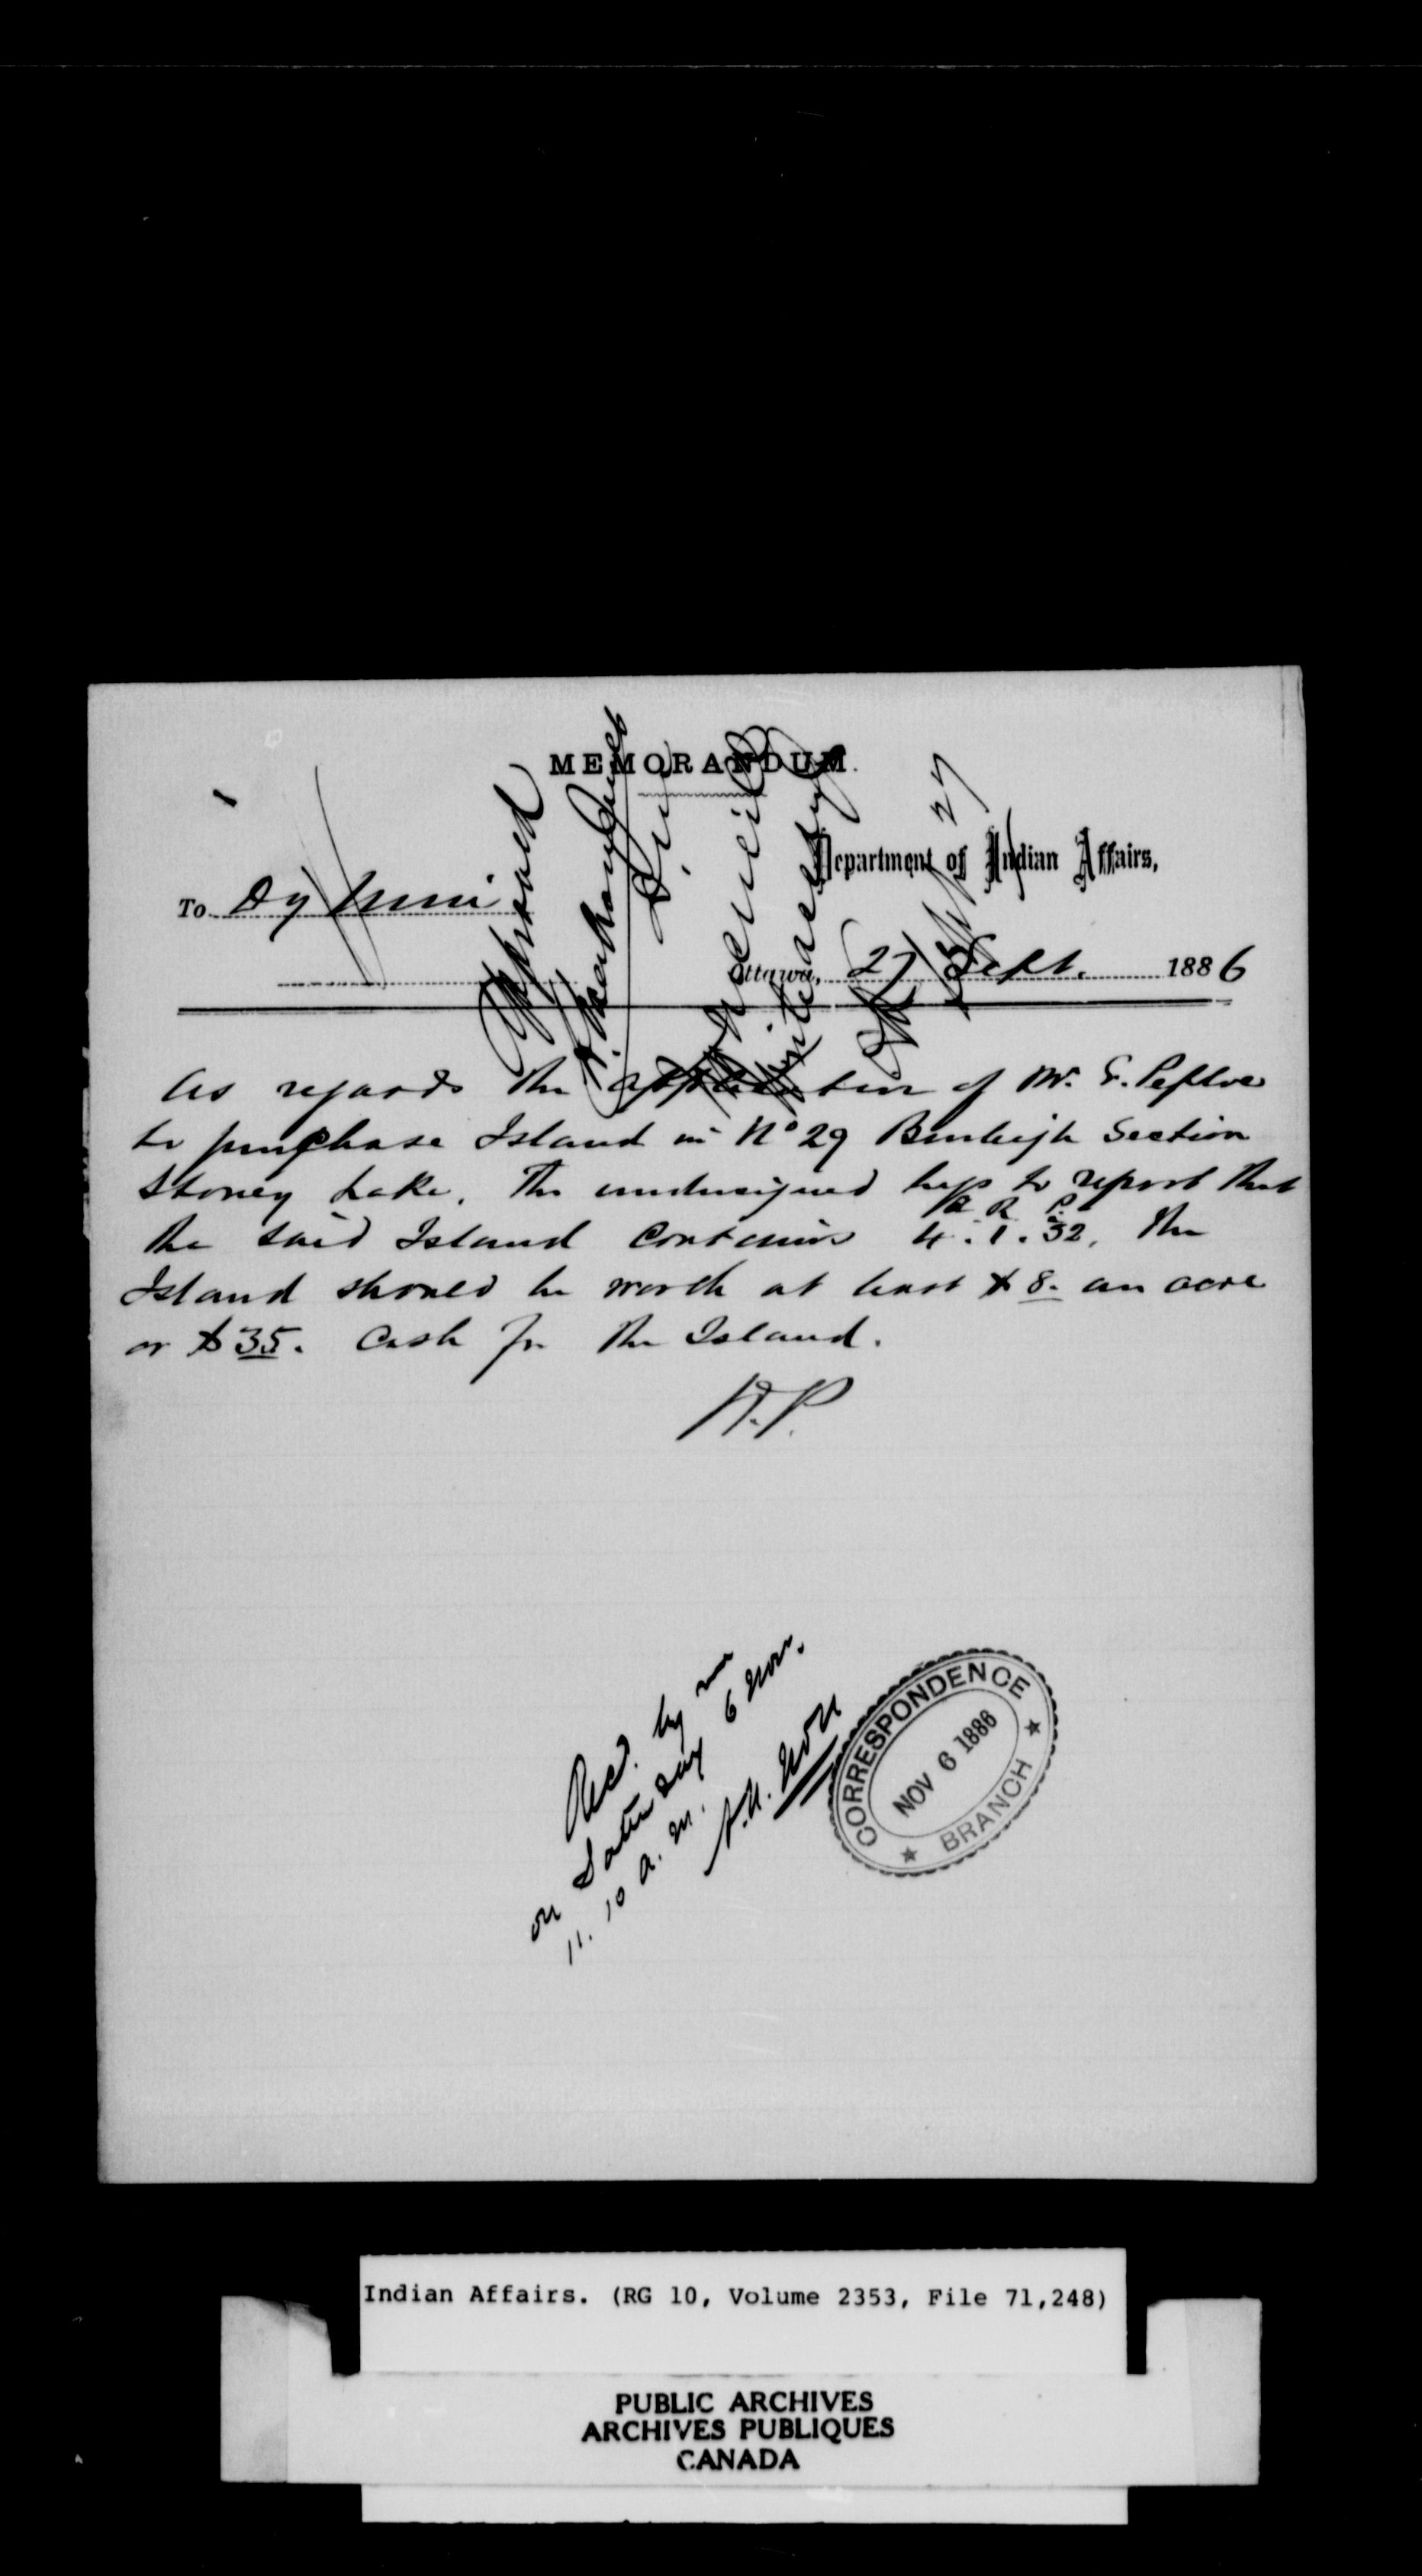 MEMORANDUM.
Department of Indian Affairs,
To Dy Mini
Ottawa, 27 Sept. 1886
Approved
27
As regards the application of Mr. G.
to purchase Island in No 29 Burleigh Section
Stoney Lake. The undersigned begs to report that
A. R. P.
the said Island contains 4. 1. 32. The
Island should be worth at least $8. an acre
or $35. Cash for the Island.
A.P.
Recd. by me
on Saturday 6 Nov.
11. 10 a. m.
CORRESPONDENCE
NOV 6 1886
BRANCH
Indian Affairs. (RG 10, Volume 2353, File 71,248)
PUBLIC ARCHIVES
ARCHIVES PUBLIQUES
CANADA